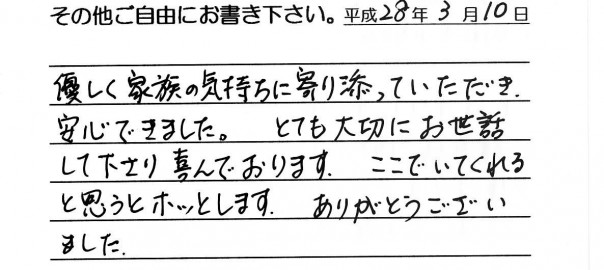 その他ご自由にお書き下さい。平成28年3月10日
優しく家族の気持ちに寄り添っていただき.
安心できました。 とても大切にお世話
して下さり喜んでおります. ここでいてくれる
と思うとホッとします. ありがとうござい
ました.